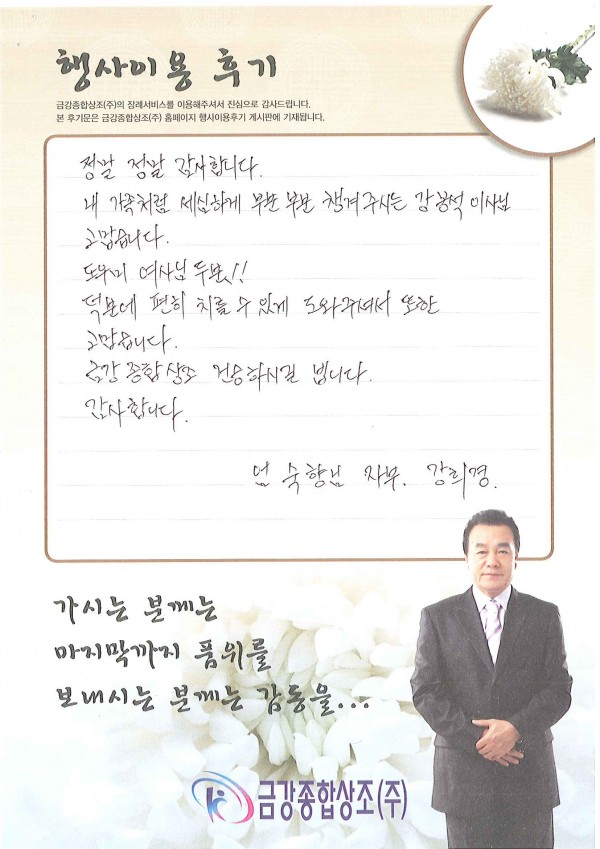 행사이용 후기
금강종합상조(주)의 장례서비스를 이용해주셔서 진심으로 감사드립니다.
본 후기문은 금강종합상조(주) 홈페이지 행사이용후기 게시판에 기재됩니다.
정말 정말 감사합니다.
내 가족처럼 세심하게 부분 부분 챙겨주시는 강봉석 이사님
고맙습니다.
도우미 여사님 두분!!
덕분에 편히 치를 수 있게 도와주셔서 또한
고맙습니다.
금강종합상조 건승하시길 빕니다.
감사합니다.
엄숙향님 자부. 강희경.
가시는 분께는
마지막까지 품위를
보내시는 분께는 감동을...
금강종합상조(주)